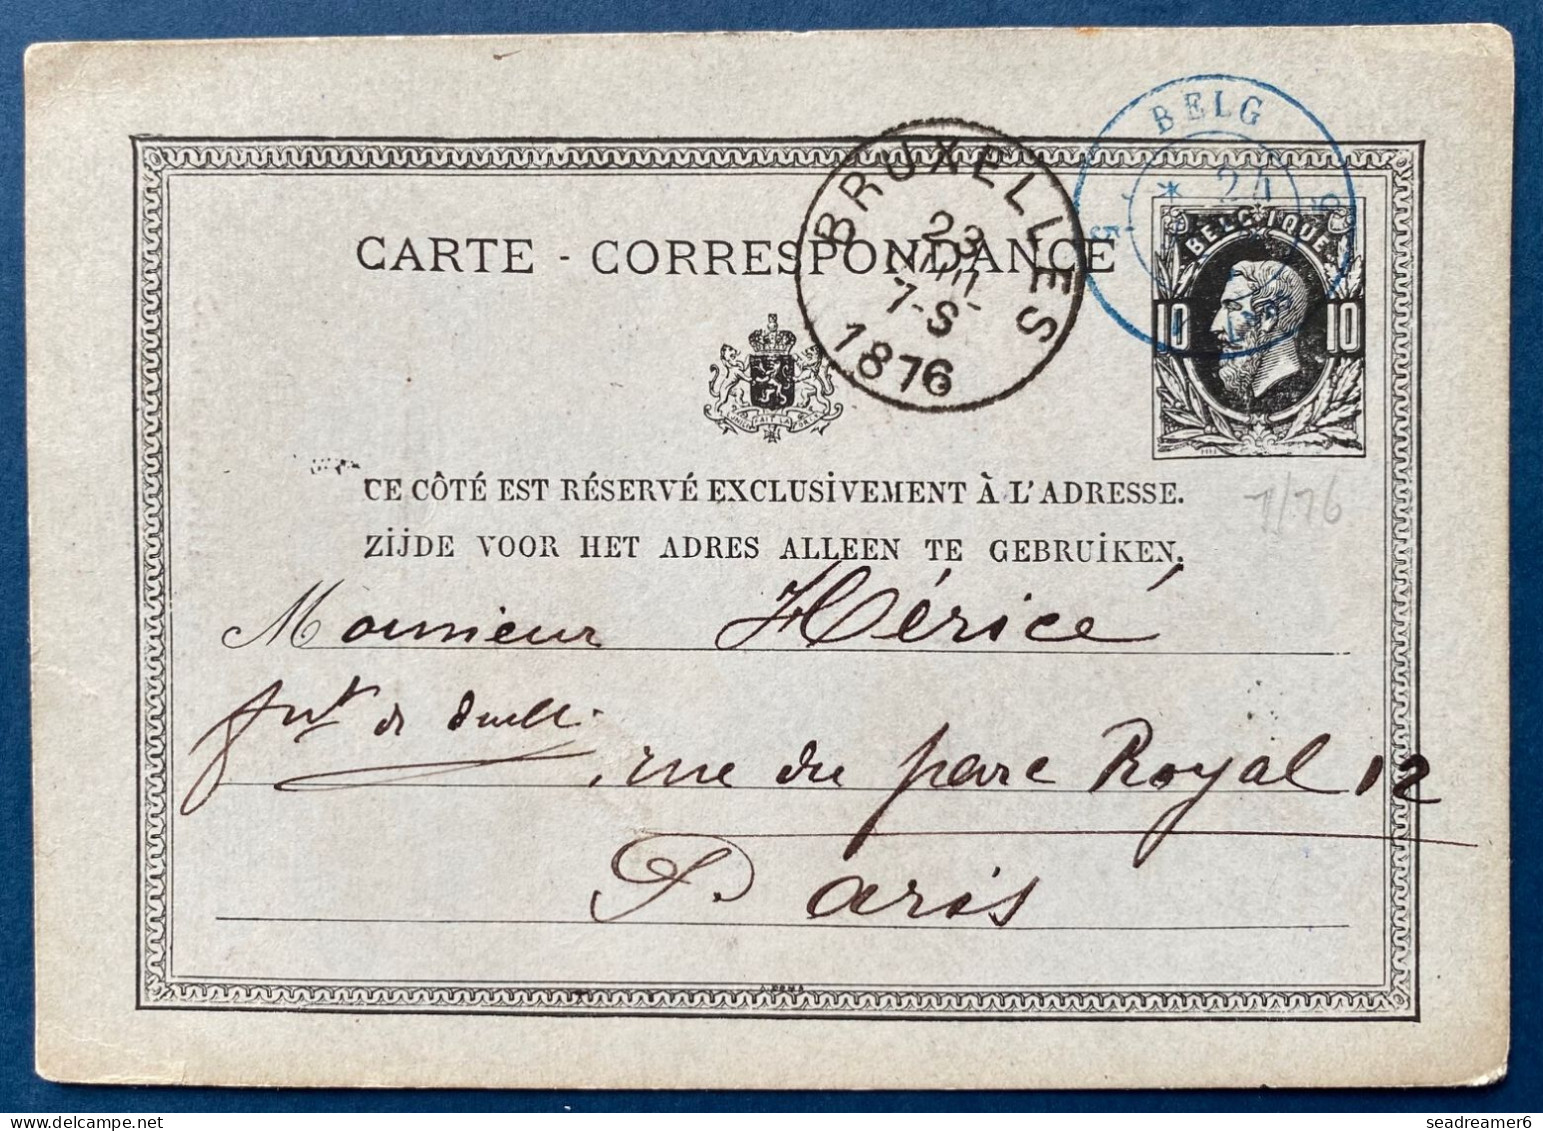 BELG
24
BELGIQUE
10 10
BRUXELLES
23
7-S
1876
CARTE - CORRESPONDANCE
CE CÔTÉ EST RÉSERVÉ EXCLUSIVEMENT À L'ADRESSE.
ZIJDE VOOR HET ADRES ALLEEN TE GEBRUIKEN.
1/76
Monsieur Héricé
rue du parc Royal 12
Paris
seadreamer6 delcampe.net